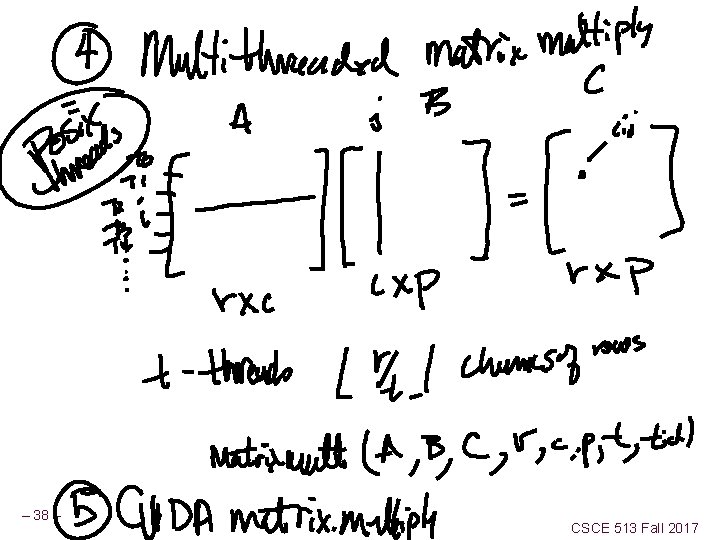 4 Multithreaded matrix multiply
Posix threads
A j B C
T0
T1
i
cij
=
r x c c x p r x p
t - threads ⌊ r/t ⌋ chunks of rows
Matrixmult (A, B, C, r, c, p, t, tid)
5 CUDA matrix multiply
– 38 –
CSCE 513 Fall 2017